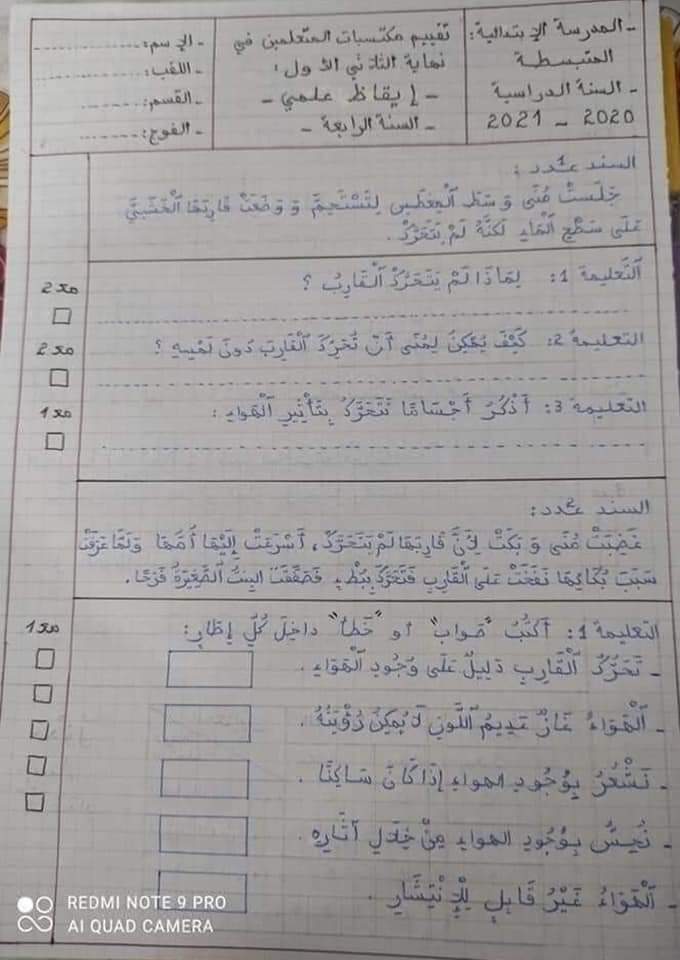 - المدرسة الإبتدائية:
المتبسطة
- السنة الدراسية
2020 - 2021
تقييم مكتسبات المتعلمين في
نهاية الثلاثي الأول:
- إيقاظ علمي -
- السنة الرابعة -
- الإسم: ........
- اللقب: ........
- القسم: ........
- الفوج: ........
السند عدد 1:
جَلَسَتْ مُنَى وَسَطَ الْمِغْطَسِ لِتَسْتَحِمَّ وَ وَضَعَتْ قَارِبَهَا الْخَشَبِيَّ
عَلَى سَطْحِ الْمَاءِ لَكِنَّهُ لَمْ يَتَحَرَّكْ.
التَّعْلِيمة 1: لِمَاذَا لَمْ يَتَحَرَّكْ الْقَارِبُ ؟
مع 2
التعليمة 2: كَيْفَ يُمْكِنُ لِمُنَى أَنْ تُحَرِّكَ الْقَارِبَ دُونَ لَمْسِهِ ؟
مع 2
التعليمة 3: أَذْكُرُ أَجْسَامًا تَتَحَرَّكُ بِتَأْثِيرِ الْهَوَاءِ:
مع 1
السند عدد 2:
غَضِبَتْ مُنَى وَ بَكَتْ لِأَنَّ قَارِبَهَا لَمْ يَتَحَرَّكْ، أَسْرَعَتْ إِلَيْهَا أُمُّهَا وَلَمَّا عَرَفَتْ
سَبَبَ بُكَائِهَا نَفَخَتْ عَلَى الْقَارِبِ فَتَحَرَّكَ بِبُطْءٍ. فَصَفَّقَتْ البِنْتُ الصَّغِيرَةُ فَرَحًا.
التعليمة 1: أَكْتُبُ "صَوَاب" أو "خَطَأ" داخِلَ كُلِّ إطَارٍ:
مع 1
- تَحَرُّكُ الْقَارِبِ دَلِيلٌ عَلَى وُجُودِ الْهَوَاءِ.
- الْهَوَاءُ غَازٌ عَدِيمُ اللَّوْنِ لَا يُمْكِنُ رُؤْيَتُهُ.
- نَشْعُرُ بِوُجُودِ الهواءِ إِذَا كَانَ سَاكِنًا.
- نُحِسُّ بِوُجُودِ الهواءِ مِنْ خِلَالِ آثَارِهِ.
- الْهَوَاءُ غَيْرُ قَابِلٍ لِلْإِنْتِشَارِ.
REDMI NOTE 9 PRO
AI QUAD CAMERA